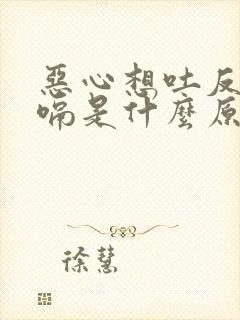 惡心想吐反
嗝是什麼原
徐慧